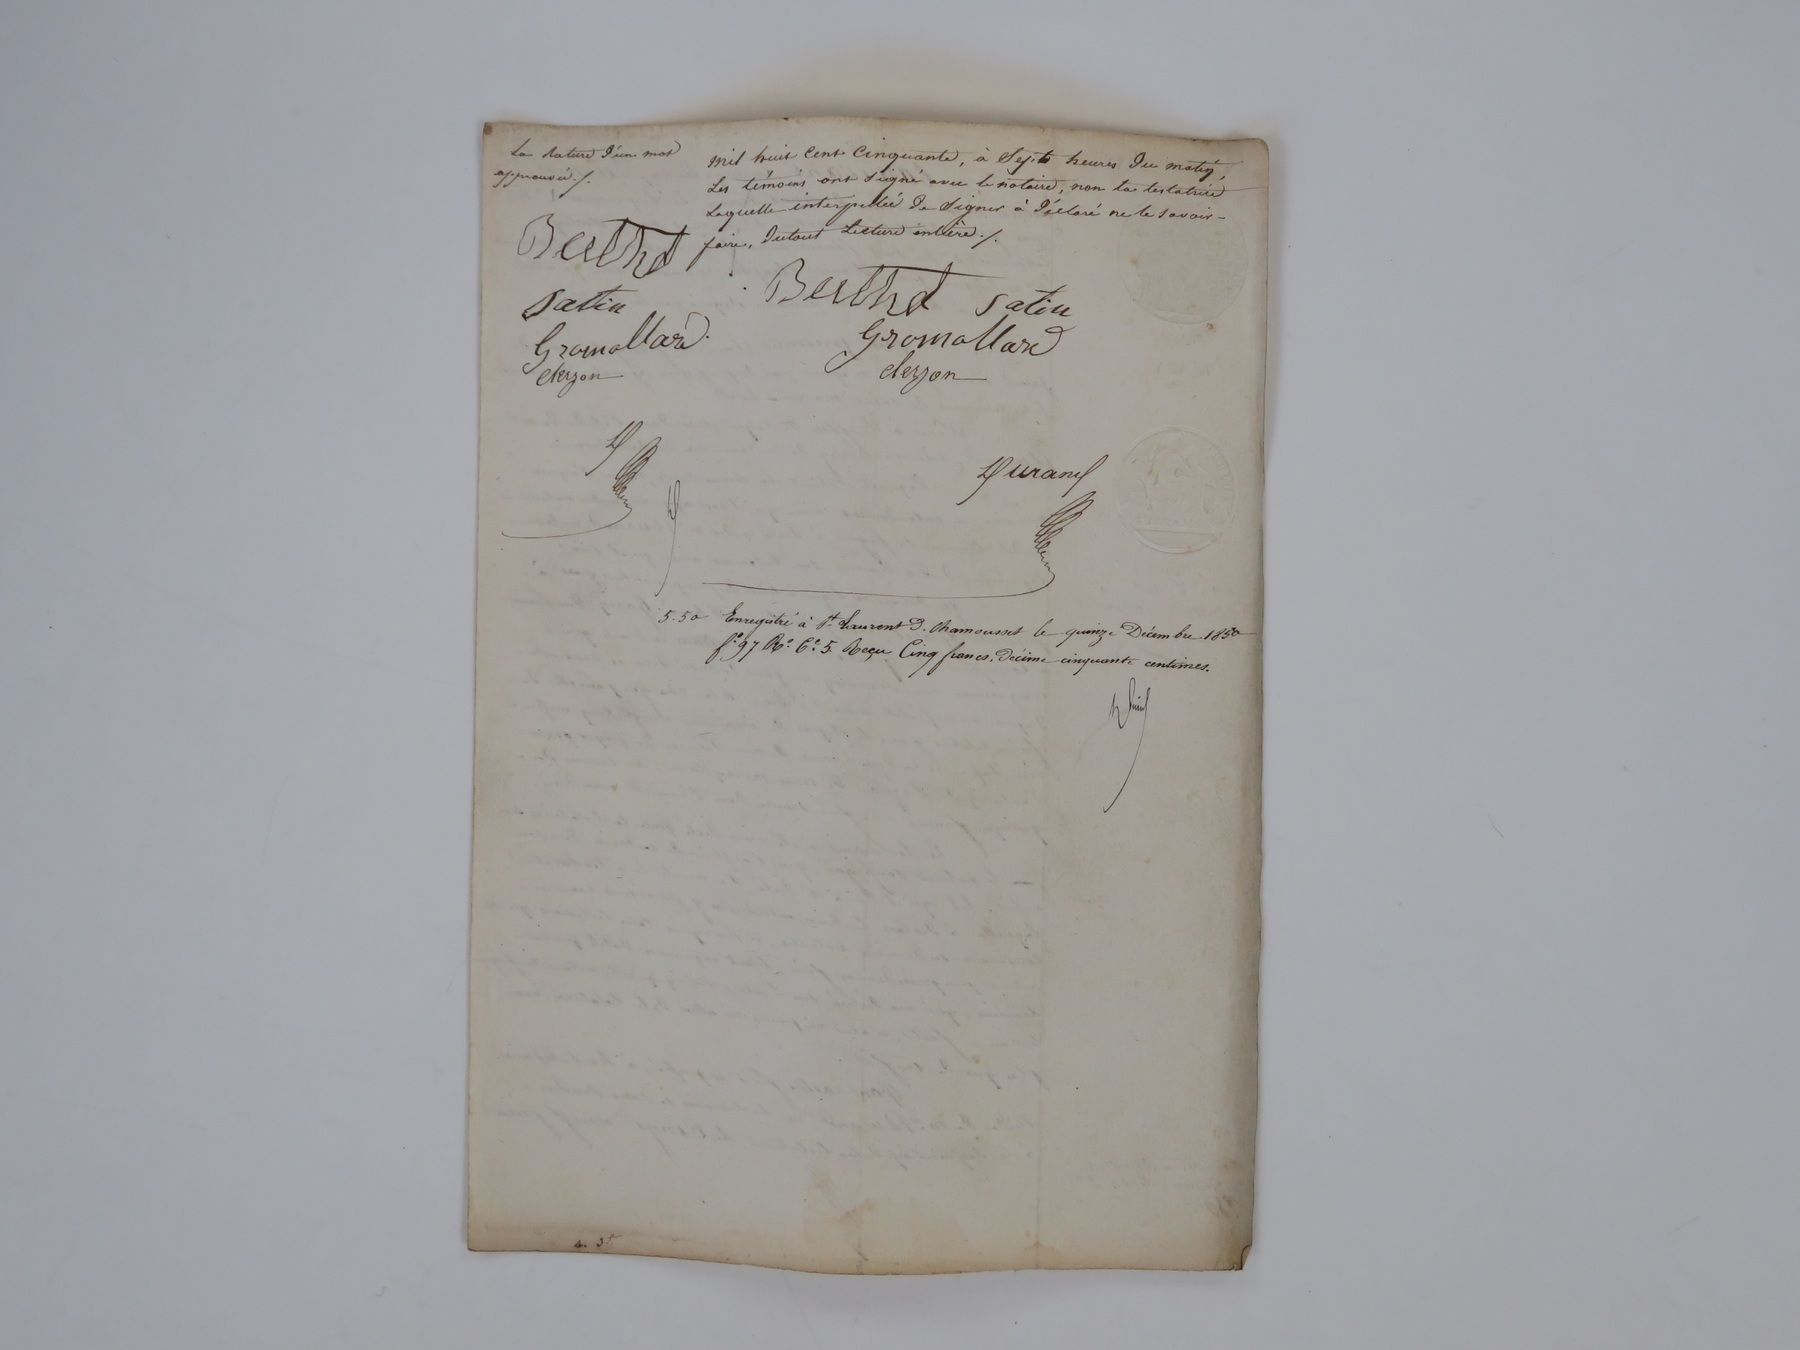 La rature d'un mot
approuvée ./.
mil huit cent cinquante, à Sept heures du matin,
Les témoins ont signé avec le notaire, non la testatrice
Laquelle interpellée de signer à déclaré ne le savoir
faire, du tout Lecture entière ./.
Berthet
Satin
Gromollard
Clerjon
Berthet Satin
Gromollard
Clerjon
D
Durand
D
5-50 Enregistré à St. Laurent D. Chamousset le quinze Décembre 1850
fo. 97 Ro. Ce. 5. Reçu Cinq francs, décime cinquante centimes.